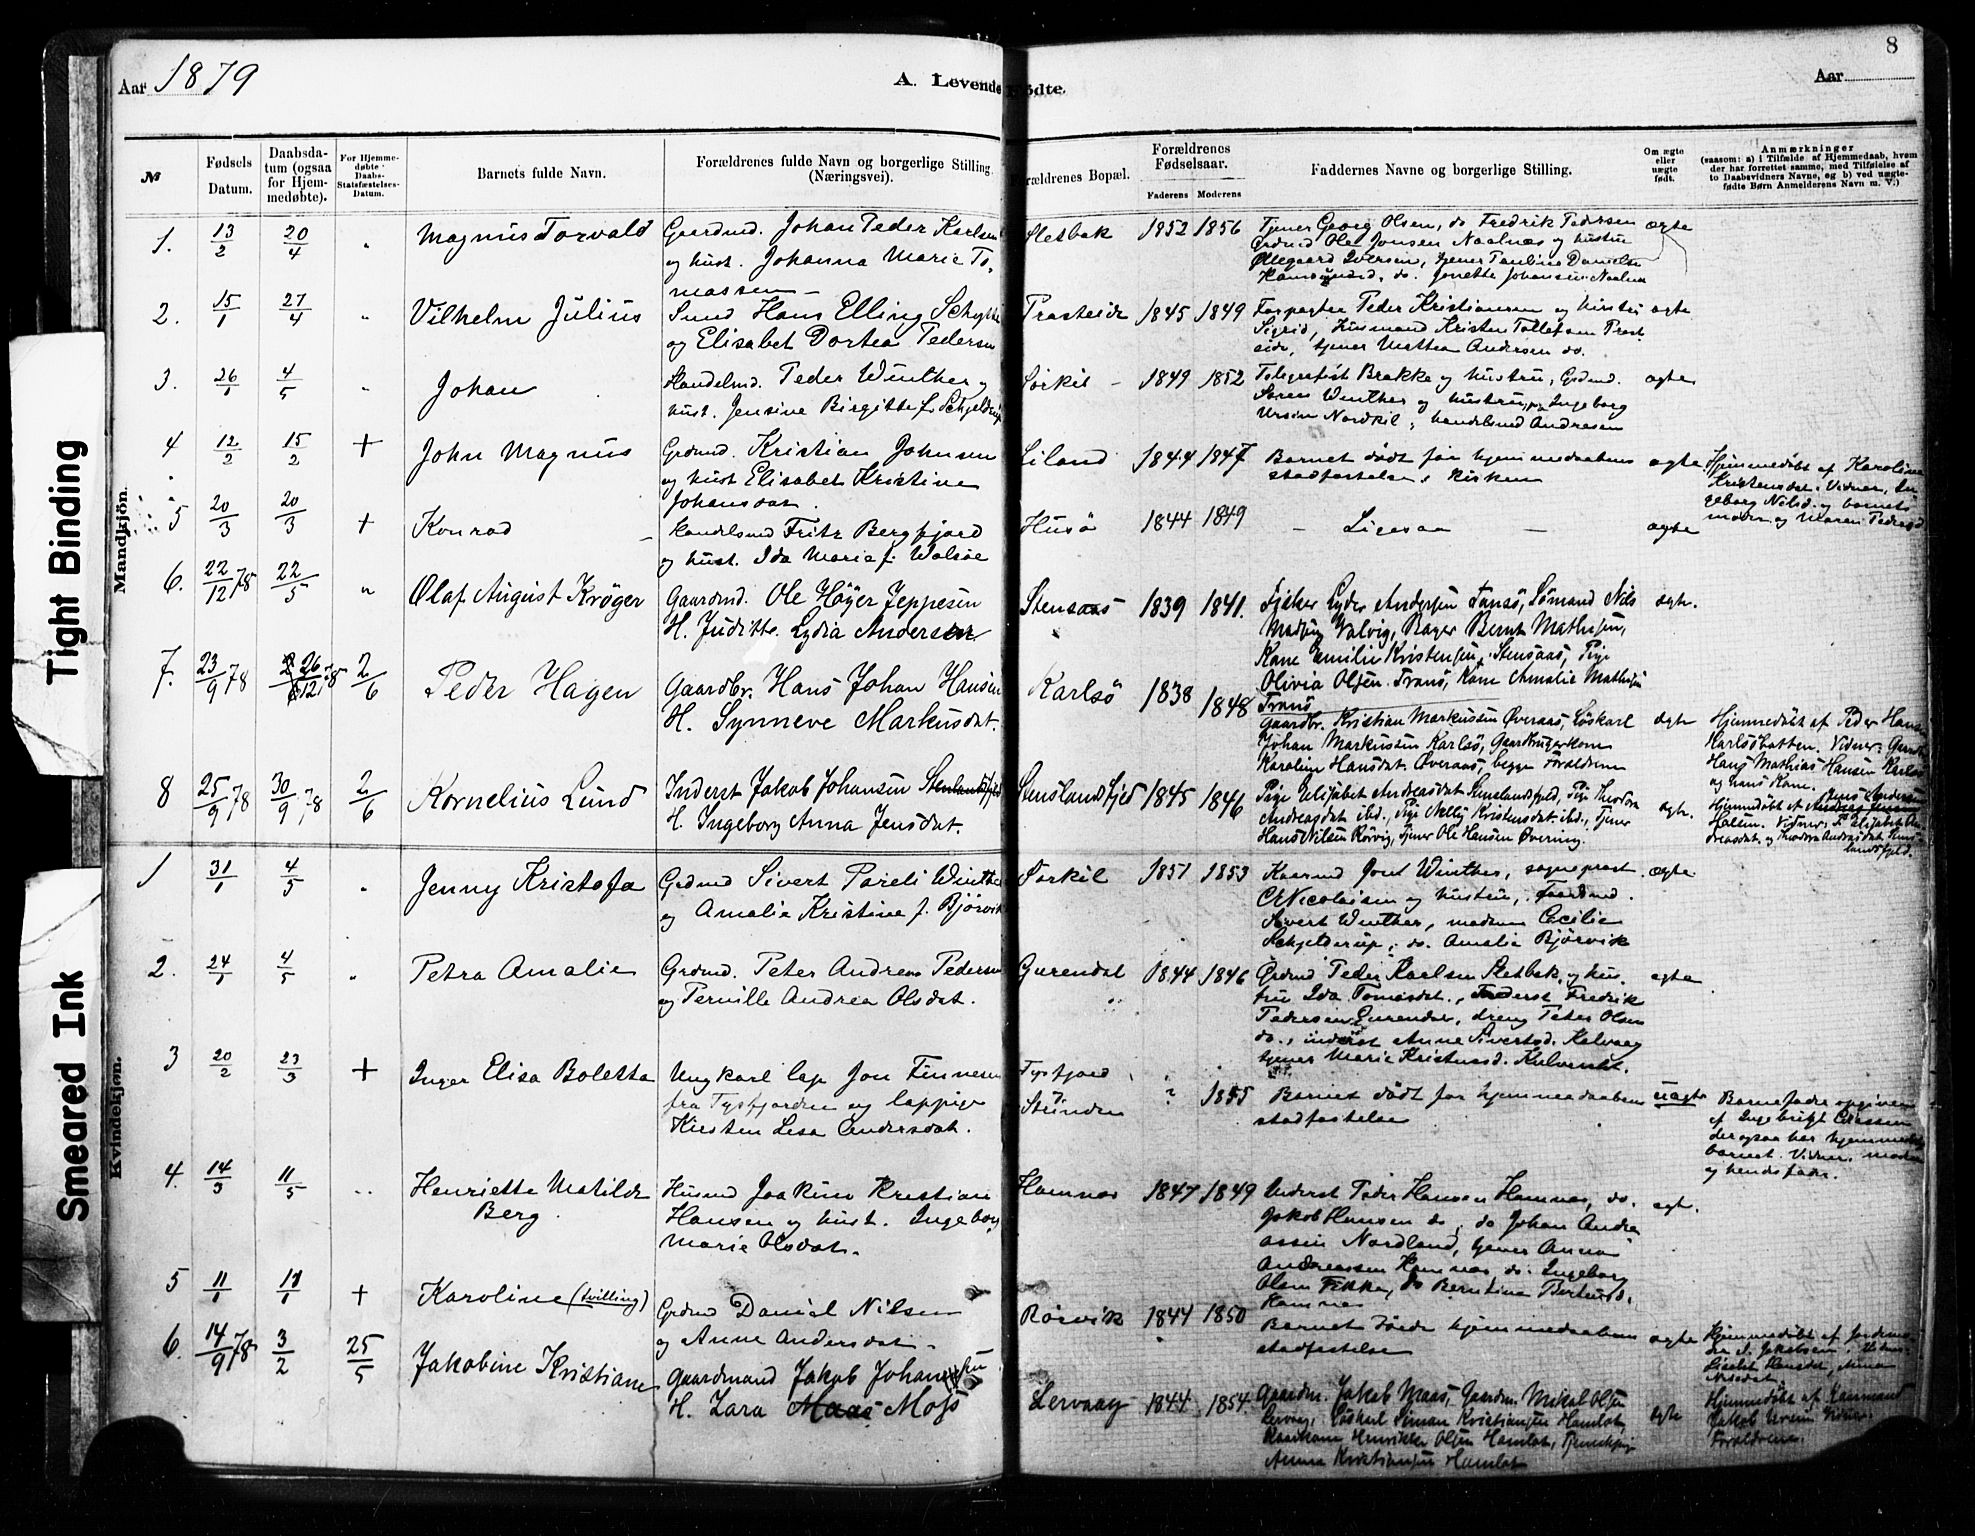 Aar 1879
A. Levende Fødte.
Aar
8
№
Fødsels Datum.
Daabsda-
tum (ogsaa
for Hjem-
medøbte).
For Hjemme-
døbte
Daabs-
Stadfæstelses-
Datum.
Barnets fulde Navn.
Forældrenes fulde Navn og borgerlige Stilling
(Næringsvei).
Forældrenes Bopæl.
Forældrenes
Fødselsaar.
Faderens Moderens
Faddernes Navne og borgerlige Stilling.
Om ægte
eller
uægte
født.
Anmærkninger
(saasom: a) i Tilfælde af Hjemmedaab, hvem
der har forrettet samme, med Tilføielse af
to Daabsvidners Navne, og b) ved uægte-
fødte Børn Anmelderens Navn m. V.)
Tight Binding
Smeared Ink
Mandkjön.
1. 13/2 20/4 " Magnus Torvald
Gaardmd. Johan Peder Karlsen
og hust. Johanna Marie To-
massen
Sletbak 1852 1856
Tjener Georg Olsen, do Fredrik Pedersen
Grdmd Ole Jonsen Naalnæs og hustru
Ollegaard Iversen, tjener Pauline Daniels
do. Jonette Johansen Naalnæs
ægte
2. 15/1 27/4 " Vilhelm Julius
Smed Hans Elling Schytte
og Elisabet Dortea Pedersen
Prasteide 1845 1849
Forpagter Peder Kristiansen og hustru
Sigrid, Husmand Kristen Tollefsen Prest-
eide, tjener Mattea Andersen do.
ægte
3. 26/1 4/5 " Johan
Handelsmd. Peder Winther og
hust. Jensine Birgitte f. Schjelderup
Sørkil 1849 1852
Telegrafist Brække og hustru, Grdmd.
Søren Winther og hustru, Ingeborg
Ursin Nordkil, handelsmd Andresen
ægte
4 12/2 15/2 + John Magnus
Grdmd. Kristian Johnsen
og hust Elisabet Kristine
Johansdat.
Liland 1844 1847
Barnet dødt før hjemmedaabens
stadfæstelse i kirken
ægte
Hjemmedøbt af Karoline
Kristensdat. Vidner, In-
geborg Nilsd. og barnets
moder og Maren Pedersd
5 20/3 20/3 + Konrad
Handelsmd Fritz Bergfjord
og hust. Ida Maria f. Walsøe
Husö 1844 1849
– Ligesaa –
ægte
6. 22/12 78 22/5 " Olaf August Krøger
Gaardmd. Ole Høyer Jeppesen
H. Judithe Lydia Andersen
Stensaas 1839 1841.
Fisker Lyder Andersen Tansø, Sømand Nils
Madsen Valvig, Bager Bernt Mathisen,
Kone Emilie Kristensen, Stensaas, Pige
Olivia Olsen. Tranö, Kone Amalie Mathisen
Tranö
ægte.
7. 23/9 78 26/12 78 2/6 Peder Hagen
Gaardbr. Hans Johan Hansen
H. Synneve Markusdat.
Karlsö 1838 1848
Gaardbr. Kristian Markussen Øveraas, Løskarl
Johan Markussen Karlsö, Gaardbrugerkone
Karoline Hansdat Øveraas, begge Forældrene
ægte
Hjemmedøbt af Peder Hans
Karlsöbotten. Vidner: Gaardb
Hans Mathias Hansen Karlsö
og hans Kone.
8 25/9 78 30/9 78 2/6 Kornelius Lund
Inderst Jakob Johansen Stenslandsfjeld
H. Ingeborg Anna Jensdat.
Stenslandsfjeld 1845 1846
Pige Elisabet Andreasdat Stenslandsfjeld, Pige Theodora
Andreasdat ibd., Pige Nelly Kristensdat ibd., Tjener
Hans Nilsen Rörvig, Tjener Ole Hansen Øvering.
ægte.
Hjemmedøbt af
Jens Andersen
Vidner, Elisabet An-
dreasdat. og Theodora Andreasdat Stens-
landsfjeld.
Kvindekjøn.
1 31/1 4/5 " Jenny Kristofa
Grdmd Sivert Pareli Winther
og Amalie Kristine f. Bjørvik
Sørkil 1851 1853
Kaarmd Jont Winther, sogneprest
C Nicolaisen og hustru, Gaardmd.
Sivert Winther, madam Cecilie
Schjelderup, do. Amalie Bjørvik
ægte
2. 24/1 4/5 " Petra Amalie
Grdmd. Peter Andreas Pedersen
og Pernille Andrea Olsdat.
Gurendal 1844 1846
Grdmd Peder Karlsen Sletbak, og hus-
tru Ida Tomasdat., Inderst Fredrik
Pedersen Gurendal, dreng Peter Olsen
do., inderst Anne Sivertsd. Kalvaag
tjener Marie Kristensd.
ægte
3 20/2 23/3 + Inger Elisa Boletta
Ungkarl lap Jon Finnesen
fra Tysfjorden og lappige
Kirsten Lisa Andersdat.
Tysfjord
Strinden
? 1855
Barnet dødt før hjemmedaabens
stadfæstelse
uægte
Barnefader opgiven
af Ingebrigt
der ogsaa har hjemmedøbt
barnet. Vidner. moder
og hendes fader.
4. 14/3 11/5 " Henriette Matilde
Berg
Husmd Joakim Kristian
Hansen og hust. Ingeborg
Marie Olsdat.
Hamnes 1847 1849
Inderst Peder Hansen Hamnes, do.
Jakob Hansen do, do Johan Andre-
assen Nordland, tjener Anna
Andreassen Hamnes do. Ingeborg
Olsen do Berntina Berteusd.
Hamnes
ægt.
5 11/1 11/1 + Karoline (tvilling)
Grdmd Daniel Nilsen
og Anne Andersdat.
Rörvik 1844 1850
Barnet døde hjemmedaabens
stadfæstelse
ægte
Hjemmedøbt af Jordemo-
der A. Jakobsen.
6. 14/9 78 3/2 25/5 Jakobine Kristiane
Gaardmand Jakob Johansen
H. Zara Maas Moss
Lervaag 1844 1854
Gaardm. Jakob Maas, Gaardm. Mikal Olsen
Lervaag, Löskarl Simon Kristiansen Hamlot,
Kaarkone Henrikke Olsen Hamlot,
Anna Kristiansen Hamlot
ægte
Hjemmedøbt af Kaarmand
Jakob Vidner.
Forældrene.